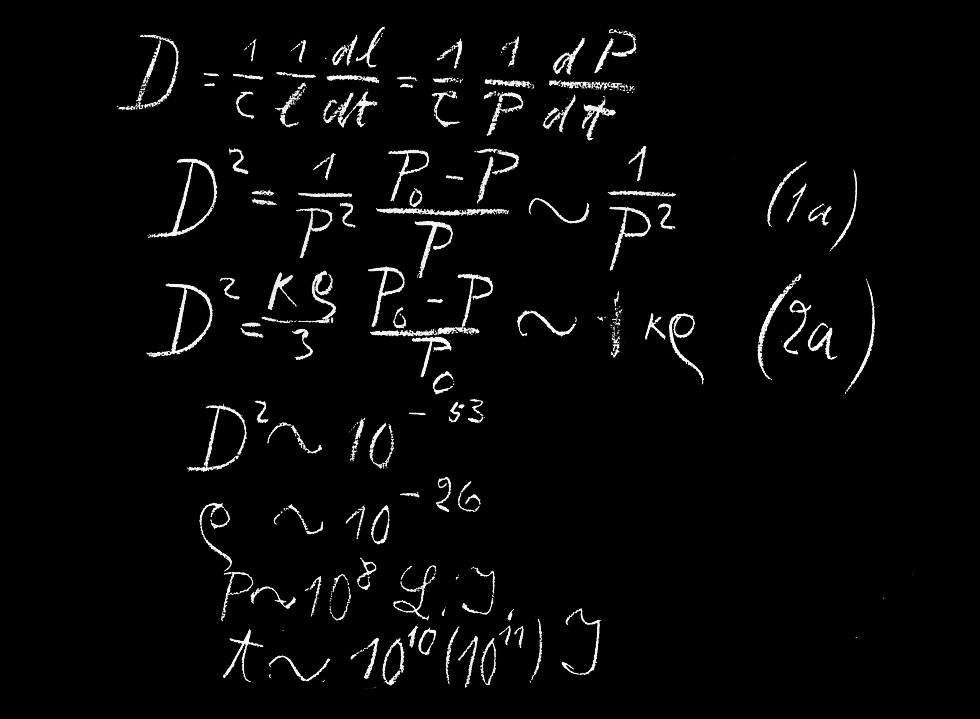 D = 1/c 1/l dl/dt = 1/c 1/P dP/dt
D² = 1/P² (P₀ - P)/P ~ 1/P² (1a)
D² = κρ/3 (P₀ - P)/P₀ ~ κρ (2a)
D² ~ 10⁻⁵³
ρ ~ 10⁻²⁶
P ~ 10⁸ L. J.
t ~ 10¹⁰ (10¹¹) J